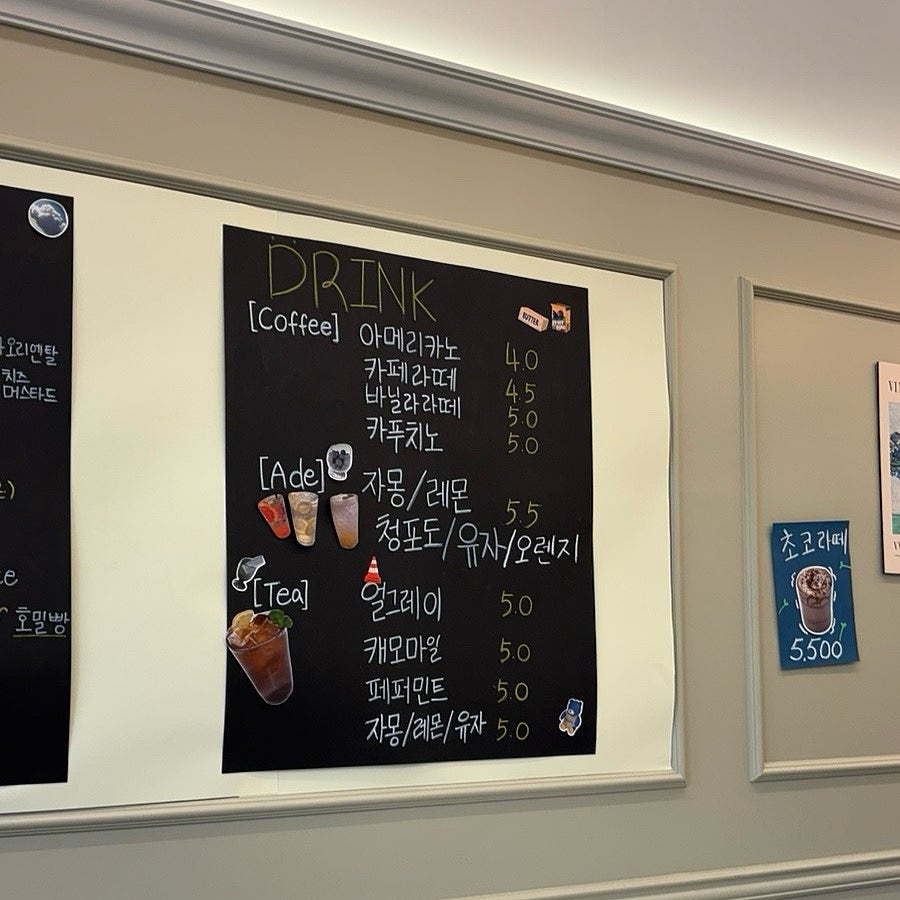 오리엔탈
치즈
머스타드
호밀빵
DRINK
BUTTER
[Coffee]
아메리카노 4.0
카페라떼 4.5
바닐라라떼 5.0
카푸치노 5.0
[Ade]
자몽/레몬 5.5
청포도/유자/오렌지
[Tea]
얼그레이 5.0
캐모마일 5.0
페퍼민트 5.0
자몽/레몬/유자 5.0
초코라떼
5,500